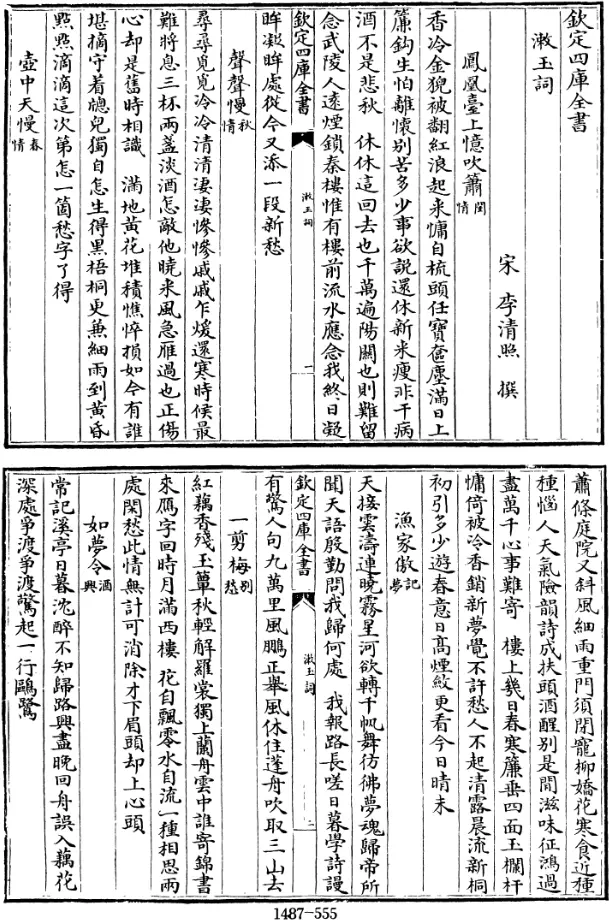 欽定四庫全書
漱玉詞
宋 李清照 撰
鳳凰臺上憶吹簫 閨情
香冷金猊被翻紅浪起来慵自梳頭任寶奩塵滿日上
簾鈎生怕離懷别苦多少事欲説還休新来瘦非干病
酒不是悲秋 休休這回去也千萬遍陽關也則難留
念武陵人遠煙鎖秦樓惟有樓前流水應念我終日凝
欽定四庫全書 漱玉詞 一
眸凝眸處從今又添一段新愁
聲聲慢 秋情
尋尋覓覓冷冷清清凄凄慘慘戚戚乍煖還寒時候最
難將息三杯兩盞淡酒怎敵他曉来風急雁過也正傷
心却是舊時相識 滿地黄花堆積憔悴損如今有誰
堪摘守着牕兒獨自怎生得黑梧桐更兼細雨到黄昏
點點滴滴這次第怎一箇愁字了得
壺中天慢 春情
蕭條庭院又斜風細雨重門須閉寵柳嬌花寒食近種
種惱人天氣險韻詩成扶頭酒醒别是閒滋味征鴻過
盡萬千心事難寄 樓上幾日春寒簾垂四面玉欄杆
慵倚被冷香銷新夢覺不許愁人不起清露晨流新桐
初引多少遊春意日高煙斂更看今日晴未
漁家傲 記夢
天接雲濤連曉霧星河欲轉千帆舞彷彿夢魂歸帝所
聞天語殷勤問我歸何處 我報路長嗟日暮學詩謾
欽定四庫全書 漱玉詞 二
有驚人句九萬里風鵬正舉風休住蓬舟吹取三山去
一剪梅 别愁
紅藕香殘玉簟秋輕解羅裳獨上蘭舟雲中誰寄錦書
來鴈字回時月滿西樓 花自飄零水自流一種相思兩
處閑愁此情無計可消除才下眉頭却上心頭
如夢令 酒興
常記溪亭日暮沈醉不知歸路興盡晚回舟誤入藕花
深處爭渡爭渡驚起一行鷗鷺
1487—555